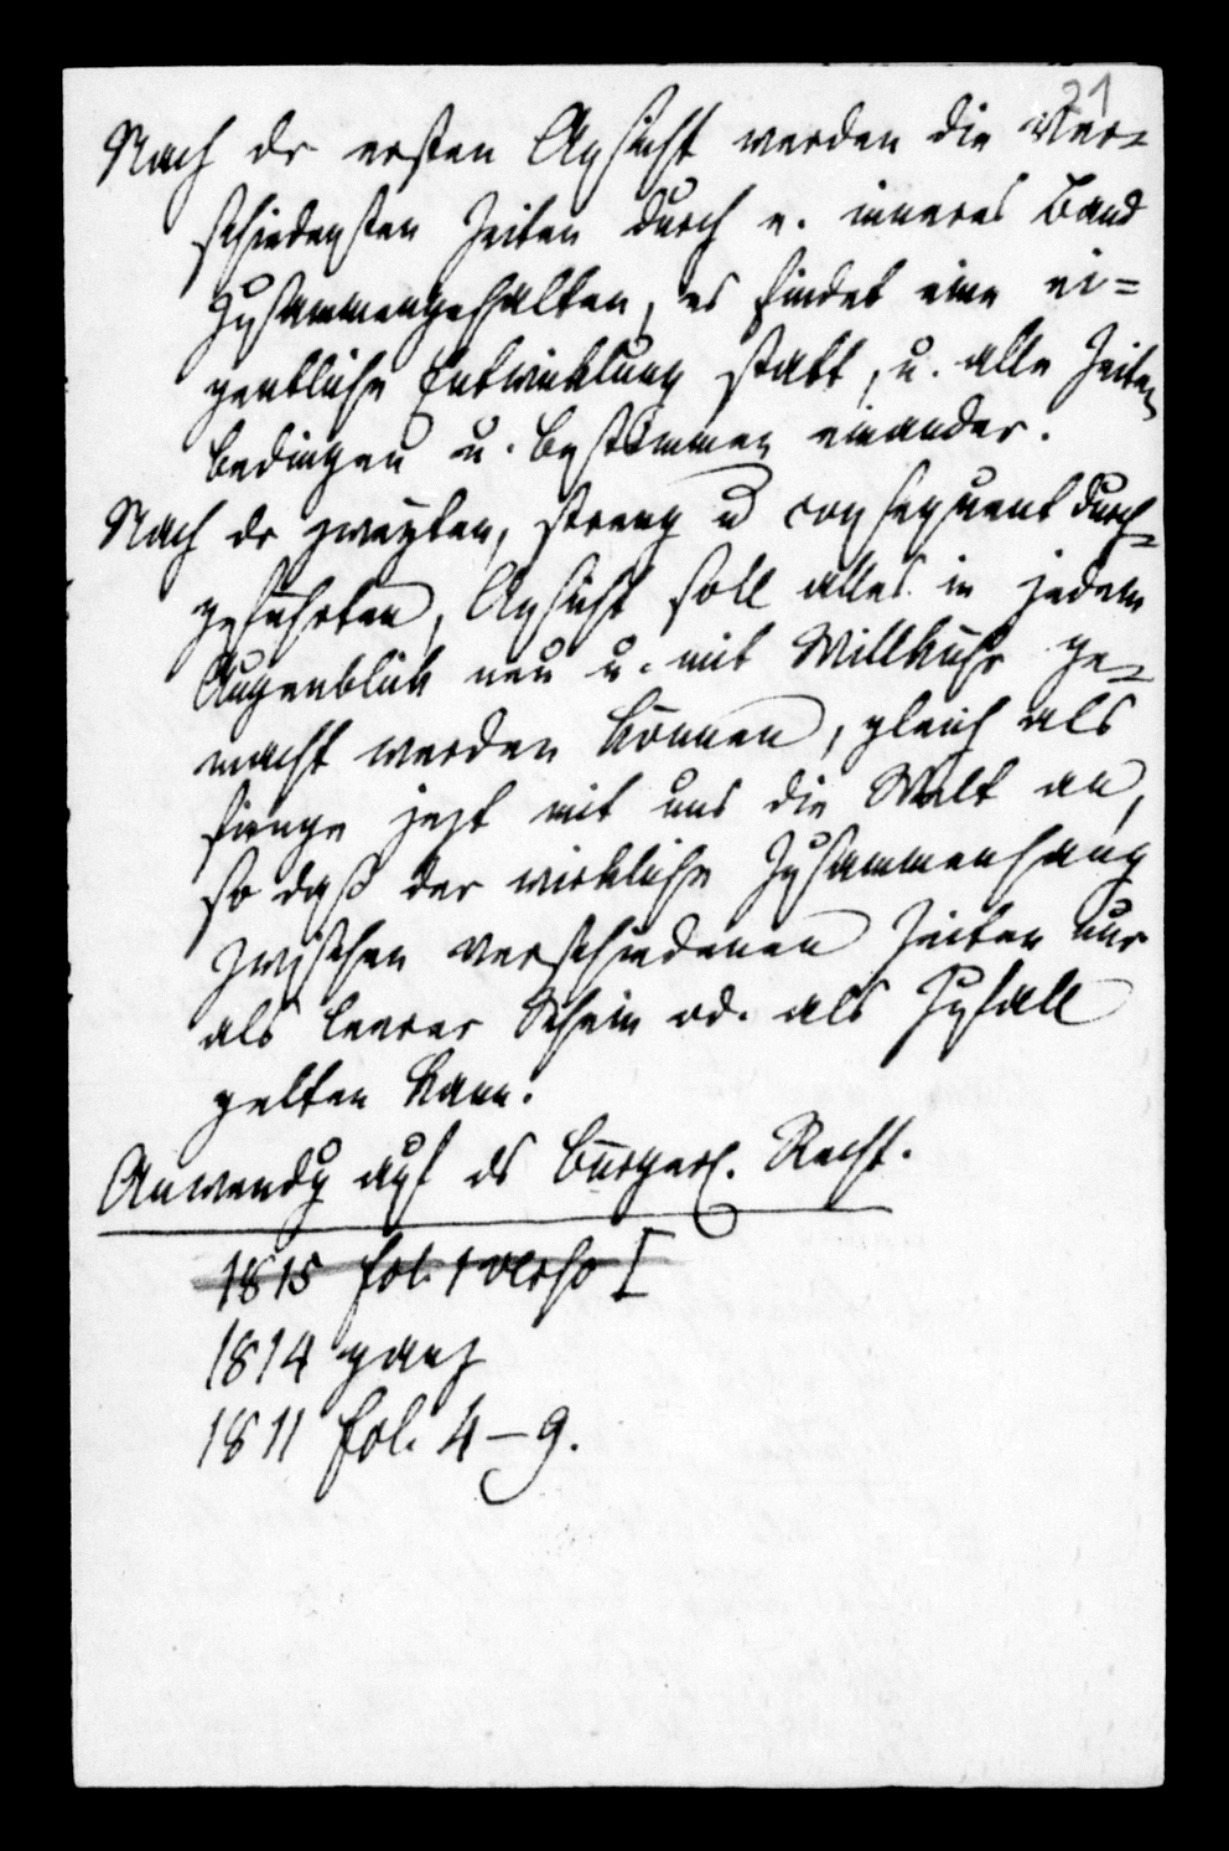 21
Nach dr ersten Ansicht werden die ver-
schiedensten Zeiten durch e. inneres Band
zusammengehalten, es findet eine ei=
gentliche Entwicklung statt, u. alle Zeiten
bedingen u. bestimmen einander.
Nach dr zweyten, streng u consequent durch-
geführten, Ansicht soll alles in jedem
Augenblick neu u. mit Willkühr ge-
macht werden können, gleich als
fienge jezt mit uns die Welt an,
so daß der wirkliche Zusammenhang
zwischen verschiedenen Zeiten nur
als leerer Schein od. als Zufall
gelten kann.
Anwendg auf ds bürgerl. Recht.
1815 fol. 1 verso I
1814 ganz
1811 fol. 4-9.